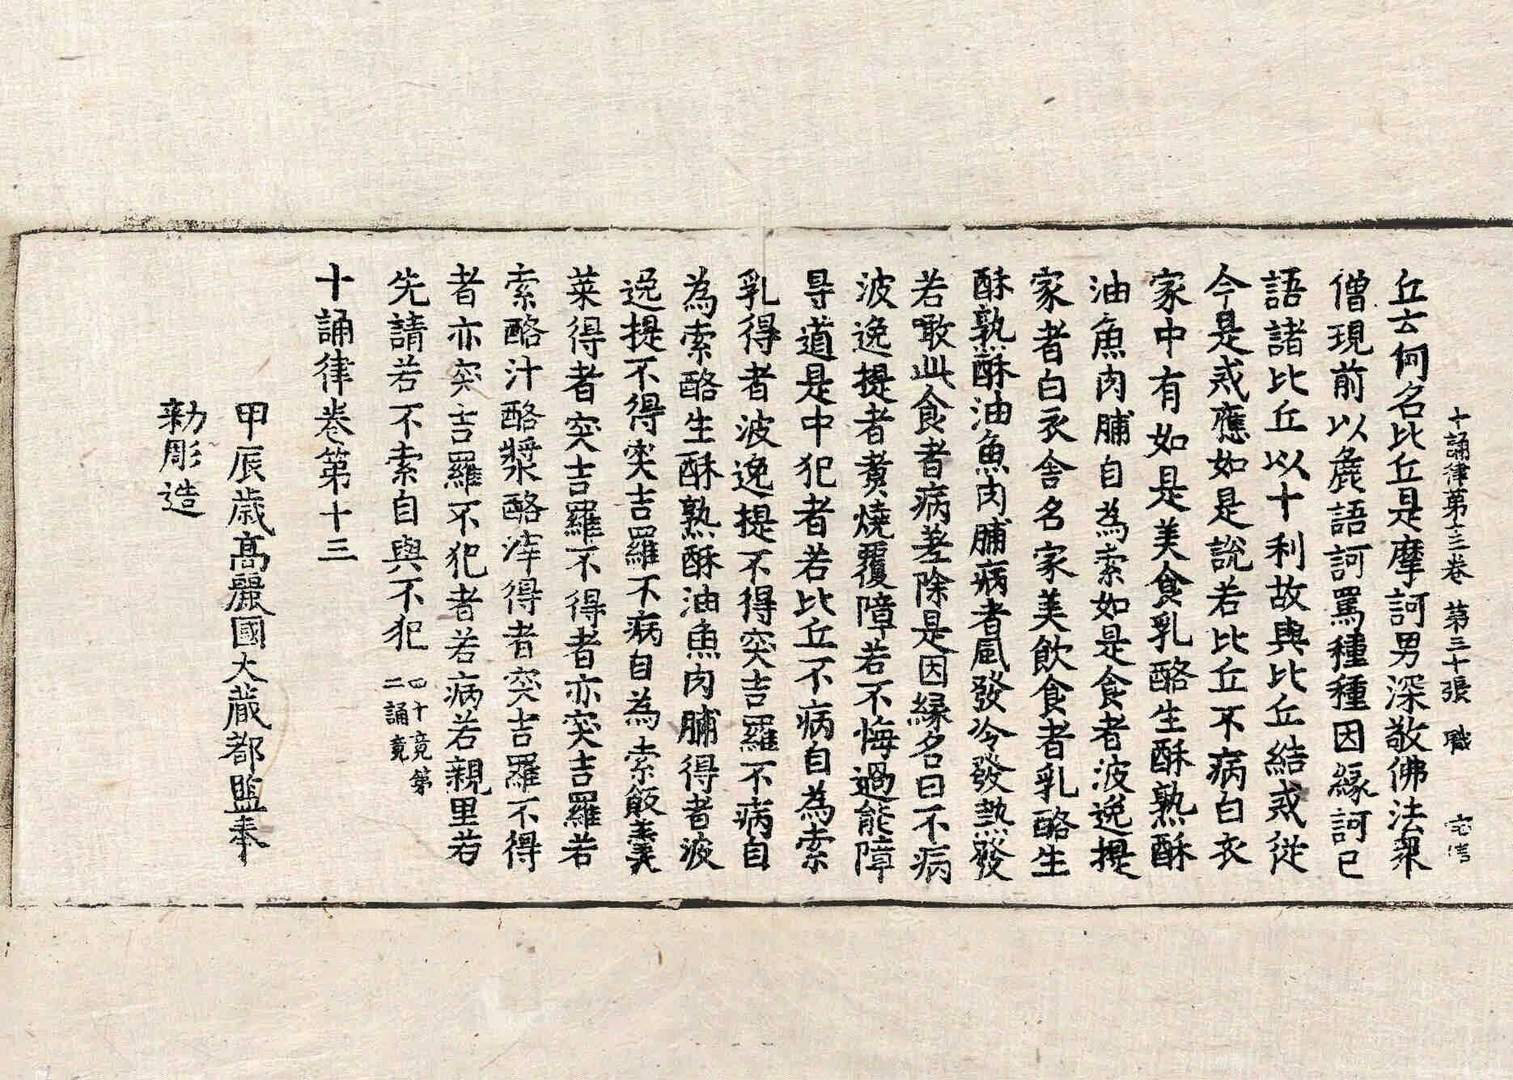 十誦律第十三卷 第三十張 職
丘云何名比丘是摩訶男深敬佛法衆
僧現前以麁語訶罵種種因緣訶已
語諸比丘以十利故與比丘結戒從
今是戒應如是說若比丘不病白衣
家中有如是美食乳酪生酥熟酥
油魚肉脯自為索如是食者波逸提
家者白衣舍名家美飲食者乳酪生
酥熟酥油魚肉脯病者風發冷發熱發
若噉此食者病差除是因緣名曰不病
波逸提者煑燒覆障若不悔過能障
㝵道是中犯者若比丘不病自為索
乳得者波逸提不得突吉羅不病自
為索酪生酥熟酥油魚肉脯得者波
逸提不得突吉羅不病自為索飯羹
菜得者突吉羅不得者亦突吉羅若
索酪汁酪漿酪滓得者突吉羅不得
者亦突吉羅不犯者若病若親里若
先請若不索自與不犯 四十竟第
二誦竟
十誦律卷第十三
甲辰歲高麗國大藏都監奉
勅彫造